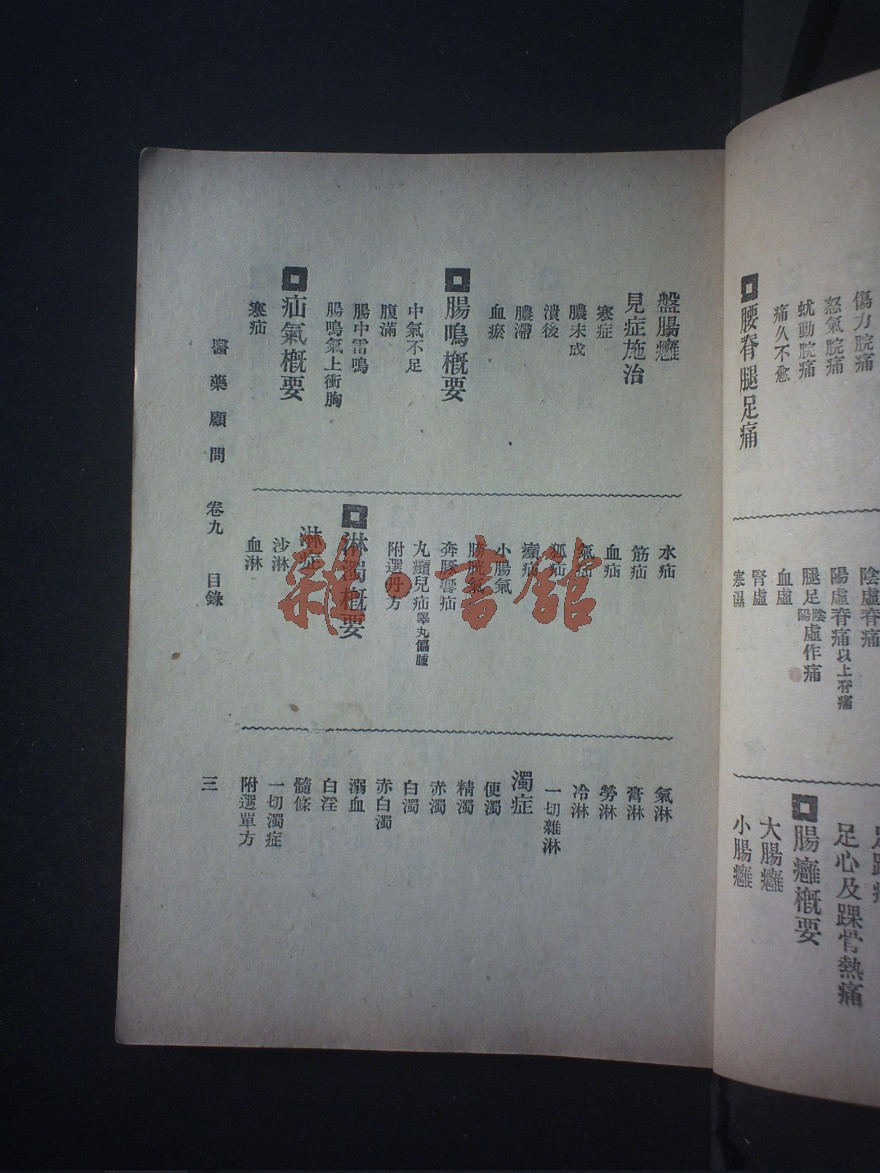 傷力脘痛
怒氣脘痛
蚘動脘痛
痛久不愈
腰脊腿足痛
陰虛脊痛
陽虛脊痛以上脊痛
腿足陰陽虛作痛
血虛
腎虛
寒濕
足心及踝骨熱痛
腸癰概要
大腸癰
小腸癰
盤腸癰
見症施治
寒症
膿未成
潰後
膿滯
血瘀
腸鳴概要
中氣不足
腹滿
腸中雷鳴
腸鳴氣上衝胸
疝氣概要
寒疝
水疝
筋疝
血疝
氣疝
狐疝
㿗疝
小腸氣
膀胱氣
奔豚疝
丸㿗兒疝睪丸偏腫
附選丹方
淋濁概要
淋症
沙淋
血淋
氣淋
膏淋
勞淋
冷淋
一切雜淋
濁症
便濁
精濁
赤濁
白濁
赤白濁
溺血
白淫
髓條
一切濁症
附選單方
醫藥顧問 卷九 目錄
三
雜·書館